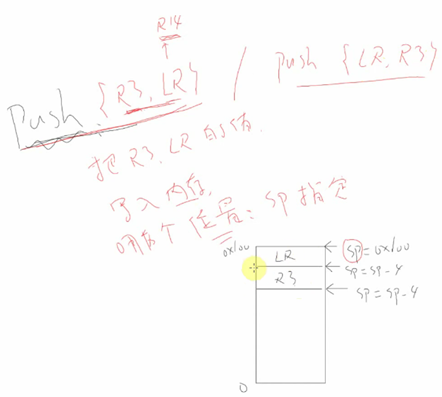 R14
Push {R3, LR} / Push {LR, R3}
把 R3, LR 的值
写入内存,
哪个位置: SP 指定
0x100
SP = 0x100
LR
SP = SP - 4
R3
SP = SP - 4
0